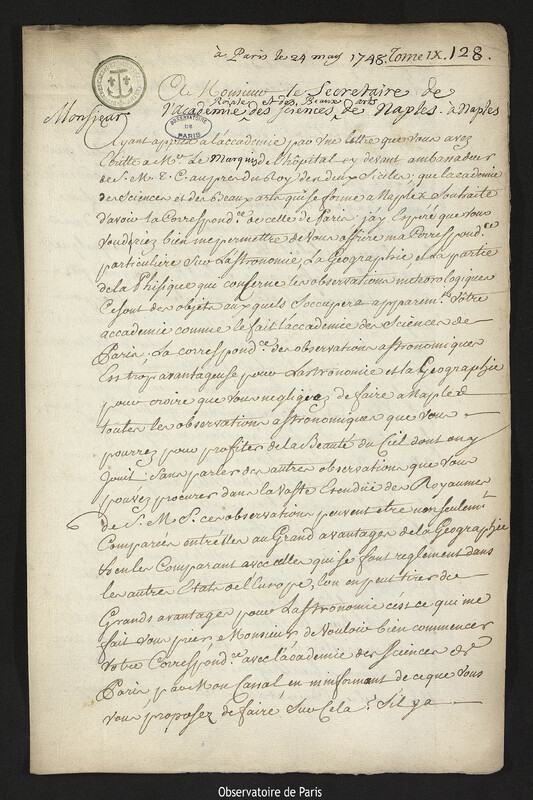 à Paris le 24 may 1748. Tome IX. 128.
A Monsieur le Secretaire de
Monsieur l'academie des sciences de Naples. à Naples
Roiale et des Beaux arts
OBSERVATOIRE DE PARIS
Ayant appris a l'academie par une lettre que vous avez
Ecritte a Mr. Le Marquis de l'hopital cy devant ambassadeur
de S. M. T. C. aupres du Roy des deux Siciles; que lacademie
des sciences et des Beaux arts qui se forme a Naples souhaite
d'avoir la Correspond.ce de celle de Paris; jay Esperé que vous
voudriez bien me permettre de vous offrire ma Correspond.ce
particuliere sur Lastronomie, La Geographie, et la partie
de la Phisique qui conserne les observations meteorologiques
Ce sont des objets aux quels s'occupera apparemt. Vôtre
accademie comme le fait l'accademie des sciences de
Paris. La correspond.ce des observations astronomiques
Est trop avantageuse pour Lastronomie et la Geographie
pour croire que vous negligiez de faire a Naples
toutes les observations astronomiques que vous
pourrez pour profiter de la Beauté du Ciel dont on y
Jouit: sans parler des autres observations que vous
pouvez procurer dans la vaste Etendüe des Royaumes
de S. M. S. ces observations peuvent etre non seulemt.
Comparées entrélles au Grand avantages de la Geographie
ou en les Comparant avec celles qui se font reglement dans
les autres Etats de l'Europe, lon en peut tirer de
Grands avantages pour Lastronomie cést ce qui me
fait vous prier Monsieur de vouloir bien commencer
Votre Correspond.ce avec l'académie des Sciences de
Paris par Mon Canal, en m'informant de ce que vous
vous proposez de faire sur Cela. S'il y a
Observatoire de Paris